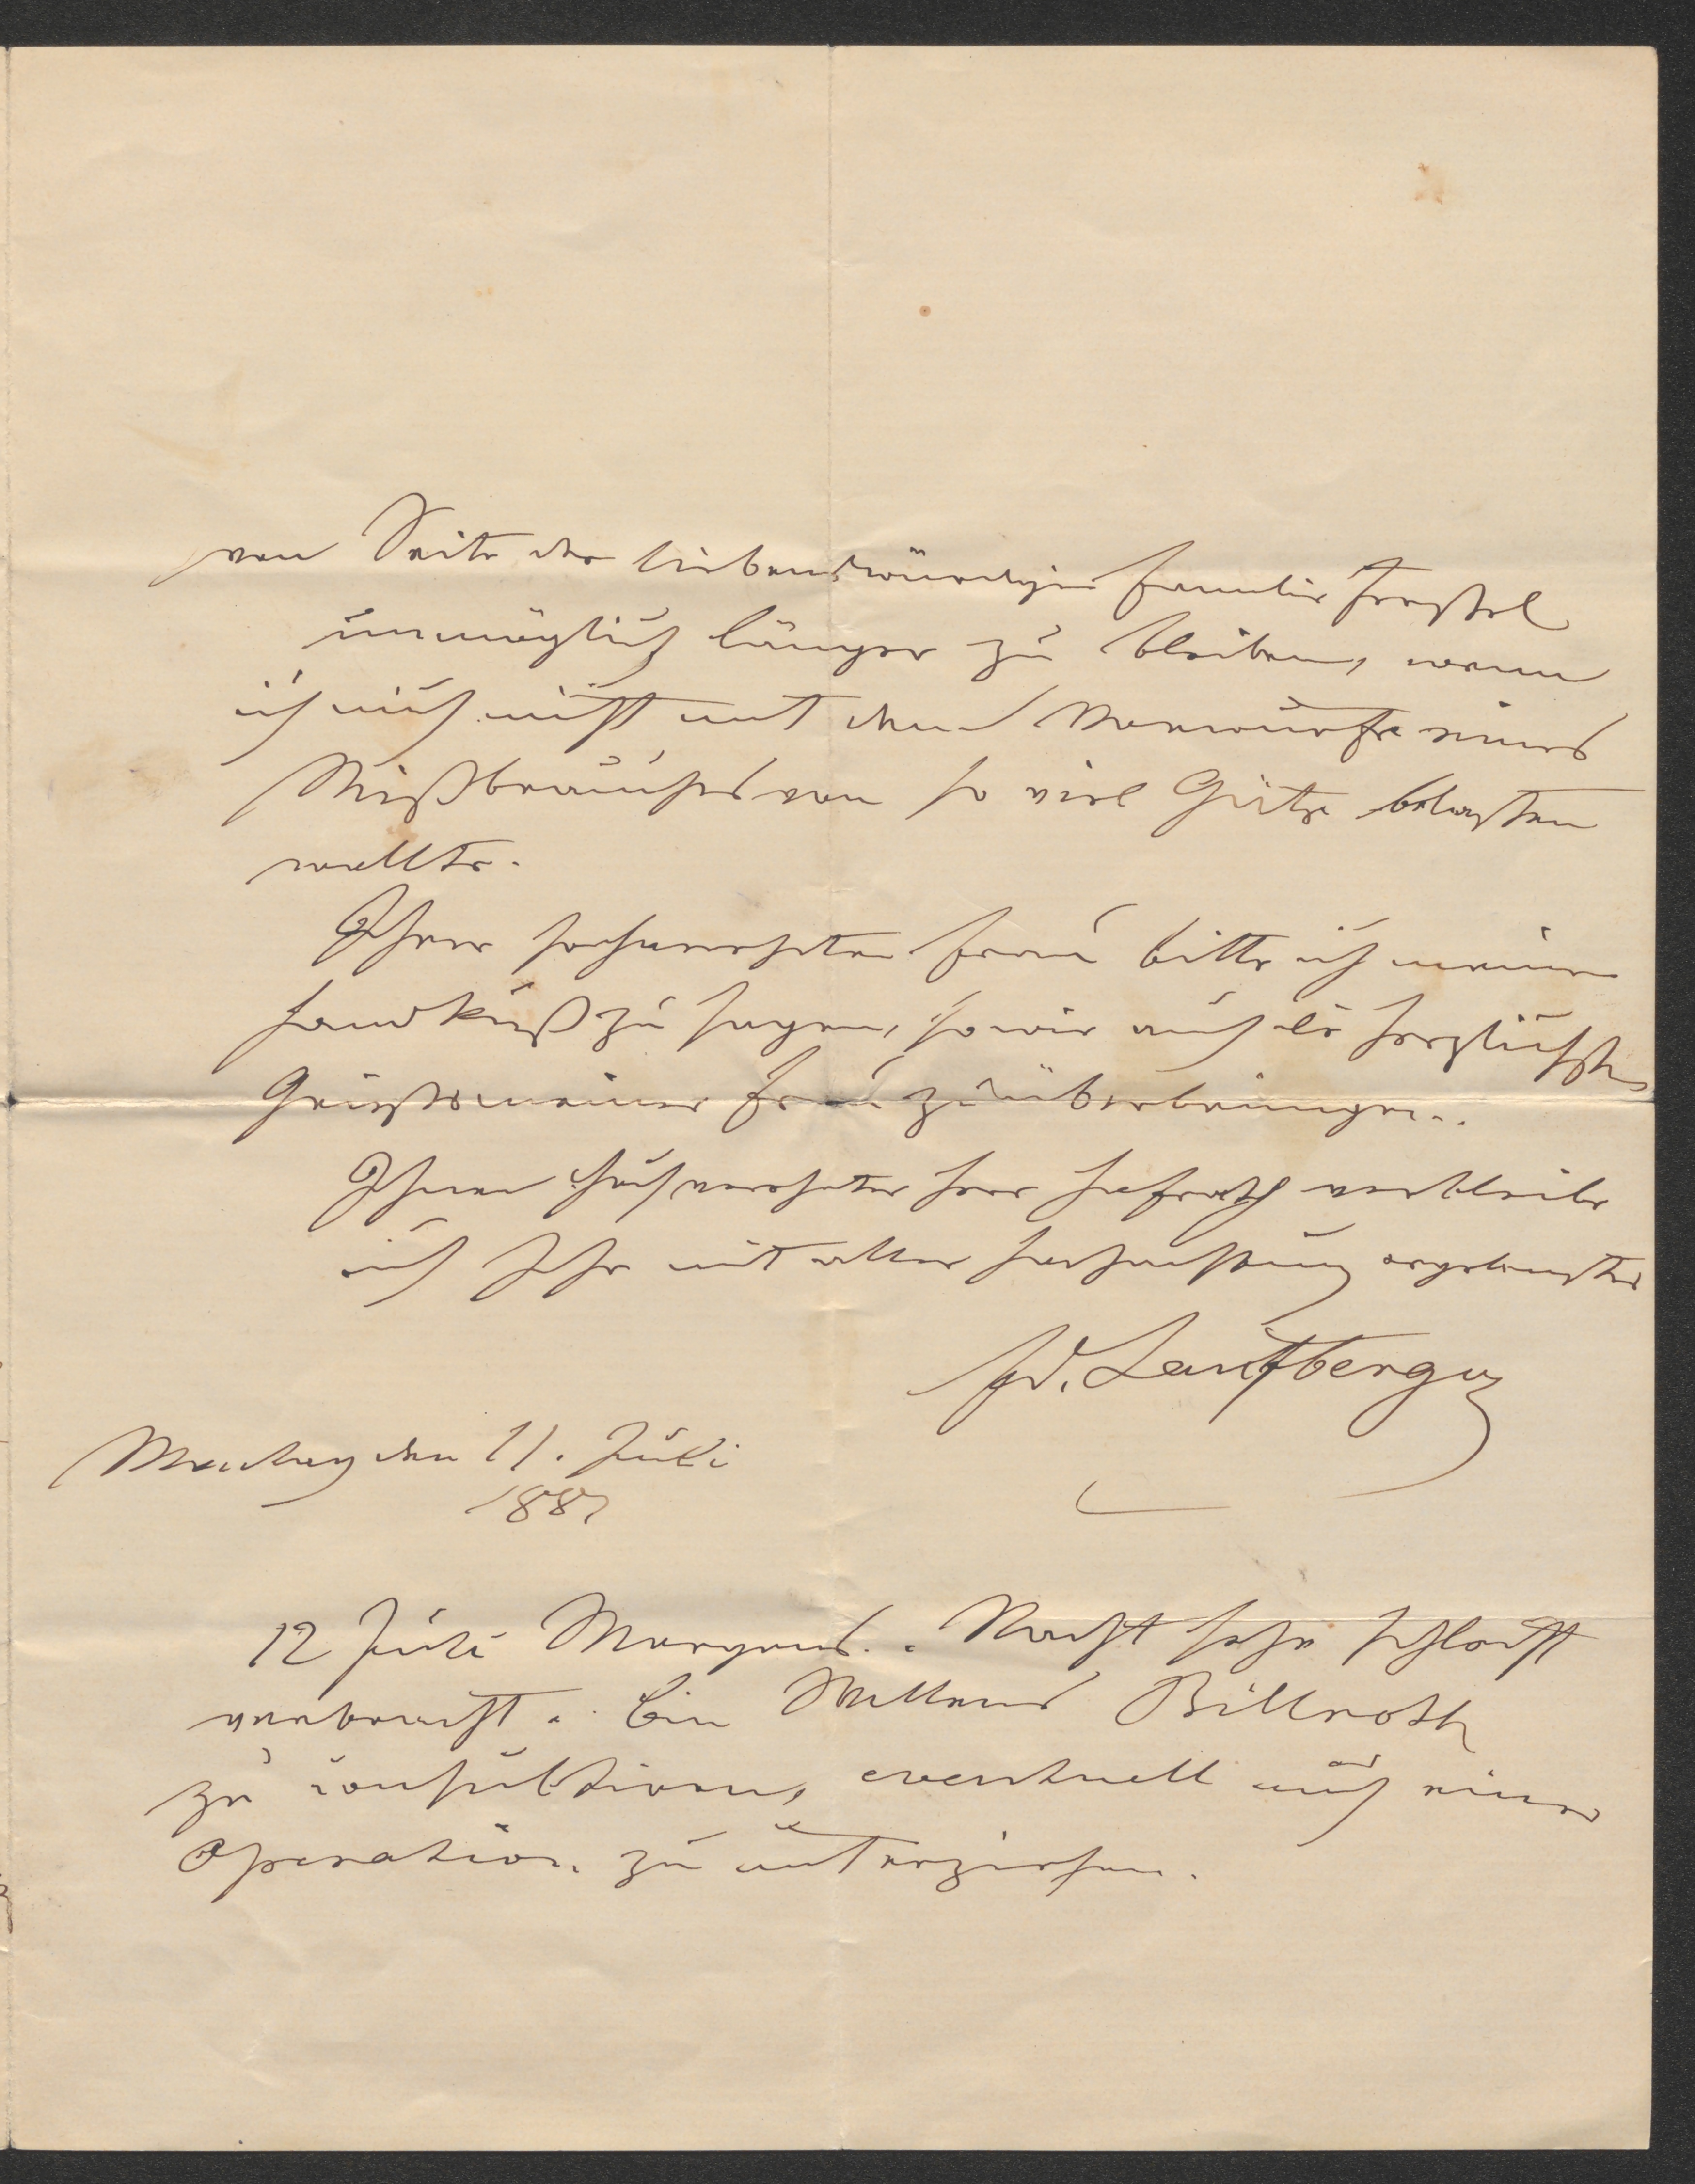 von Seite der liebenswürdigen Familie Ferstel
unmöglich länger zu bleiben, wenn
ich mich nicht mit dem Vorwurfe eines
Mißbrauches von so viel Güte belasten
wollte.
Ihrer hochverehrten Frau bitte ich meinen
Handkuß zu sagen, sowie auch die herzlichsten
Grüße meiner Frau zu überbringen.
Ihnen hochverehrter Herr Hofrath verbleibe
ich Ihr mit aller Hochachtung ergebenster
Fd. Laufberger
Montag den 11. Juli
1881
12 Juli Morgens. Nacht sehr schlecht
verbracht. Bin Willens Billroth
zu consultiren, eventuell mich einer
Operation zu unterziehen.